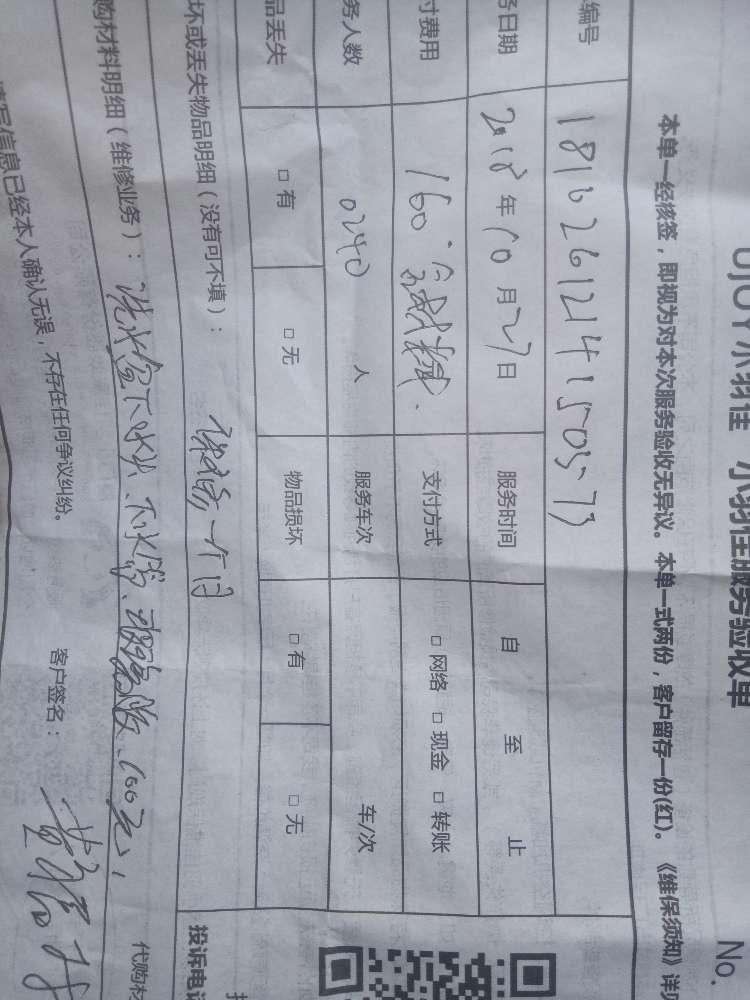 UJOY小羽佳 小羽佳服务验收单
No.
本单一经核签，即视为对本次服务验收无异议。本单一式两份，客户留存一份(红)。《维保须知》详
编号 181026121415073
务日期 2018年10月27日 服务时间 自 至 止
付费用 160. 支付方式 □ 网络 □ 现金 □ 转账
务人数 人 服务车次 车/次
品丢失 □ 有 □ 无 物品损坏 □ 有 □ 无
坏或丢失物品明细（没有可不填）： 一个月
投诉电
购材料明细（维修业务）： 洗水盆下水 100元，
代购材
填写信息已经本人确认无误，不存在任何争议纠纷。 客户签名：